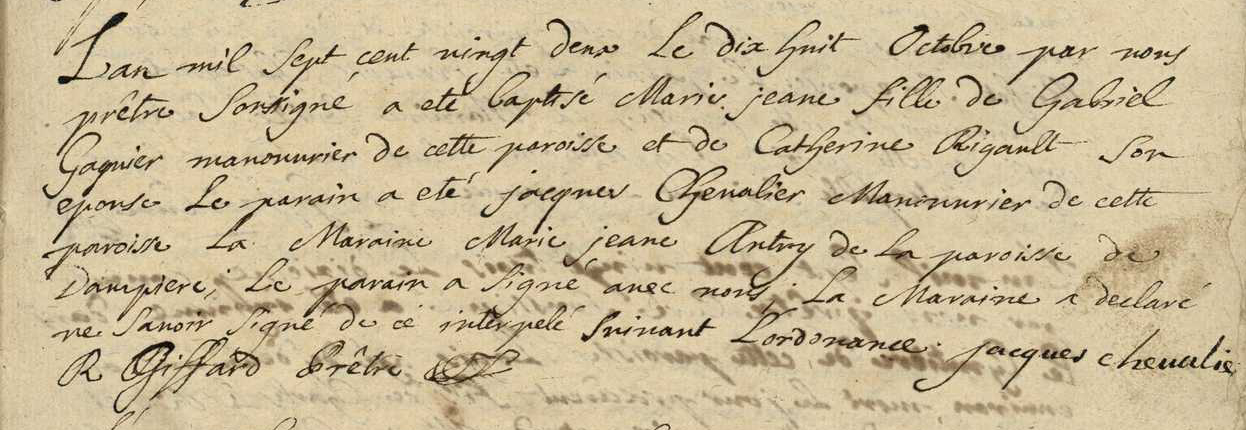 Lan mil sept cent vingt deux Le dix huit Octobre par nous
prêtre sousigné a eté baptisé Marie jeane fille de Gabriel
Gaquier manouurier de cette paroisse et de Catherine Rigault son
epouse Le parain a eté jacques Chevalier Manouurier de cette
paroisse La Maraine Marie jeane Antry de La paroisse de
Dampiere; Le parain a signé auec nous; La Maraine a declaré
ne sauoir signé de ce interpelé suivant L'ordonance. jacques chevalie
R Giffard Prêtre